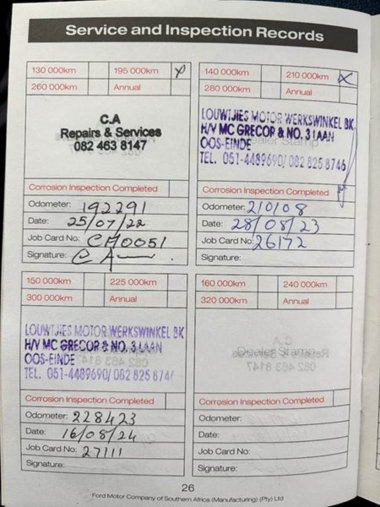 Service and Inspection Records
130 000km 195 000km
260 000km Annual
C.A
Repairs & Services
082 463 8147
Corrosion Inspection Completed
Odometer: 192291
Date: 25/07/22
Job Card No: CA0051
Signature: CA
140 000km 210 000km X
280 000km Annual
LOUWTJIES MOTOR WERKSWINKEL BK
H/V MC GRECOR & NO. 3 LAAN
OOS-EINDE
TEL. 051-4489690/ 082 825 8746
Corrosion Inspection Completed
Odometer: 210108
Date: 28/08/23
Job Card No: 26172
Signature:
150 000km 225 000km
300 000km Annual
LOUWTJIES MOTOR WERKSWINKEL BK
H/V MC GRECOR & NO. 3 LAAN
OOS-EINDE
TEL. 051-4489690/ 082 825 874
Corrosion Inspection Completed
Odometer: 228423
Date: 16/08/24
Job Card No: 27111
Signature:
160 000km 240 000km
320 000km Annual
Corrosion Inspection Completed
Odometer:
Date:
Job Card No:
Signature:
26
Ford Motor Company of Southern Africa (Manufacturing) (Pty) Ltd